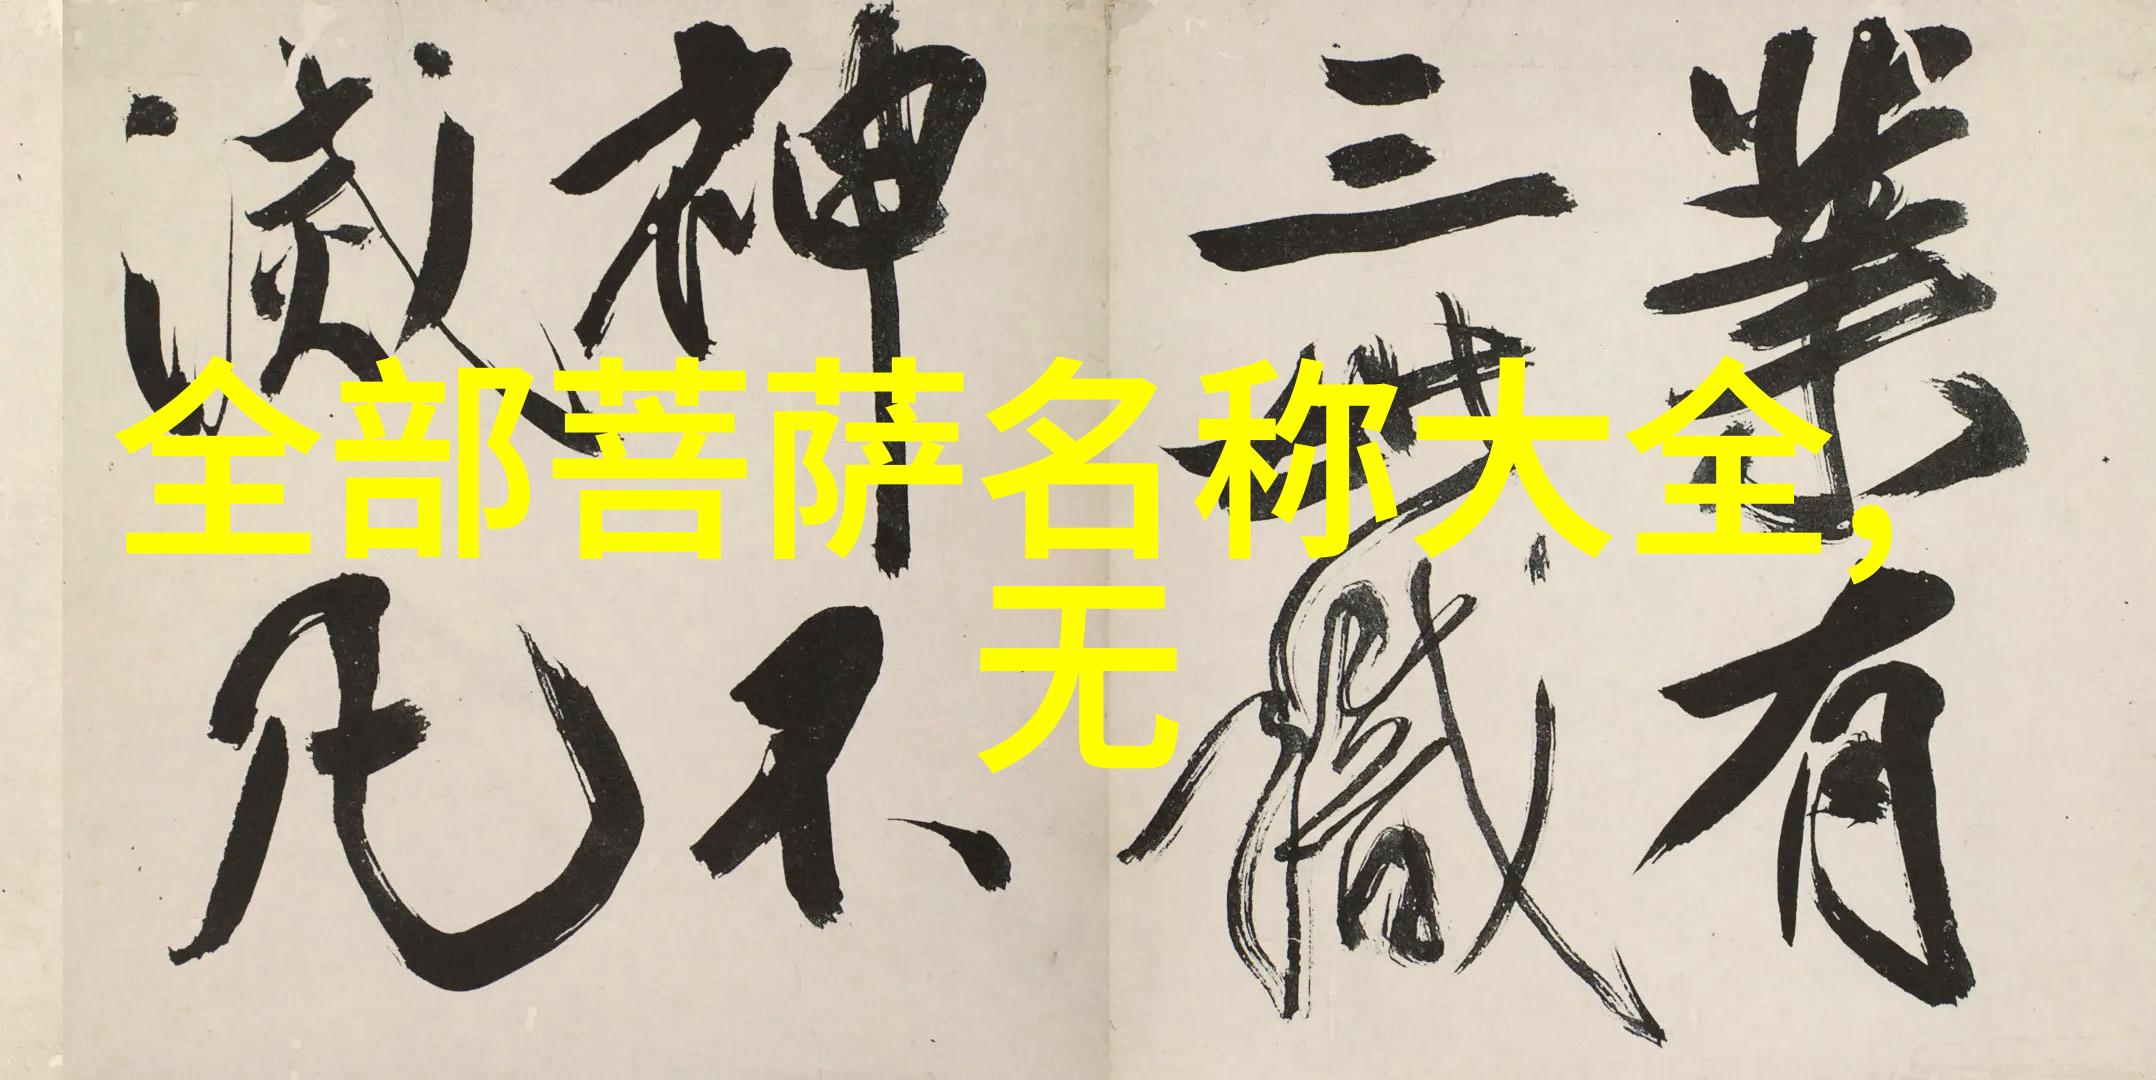 全部菩萨名称大全,
无
業有
三世識
神不
滅凡